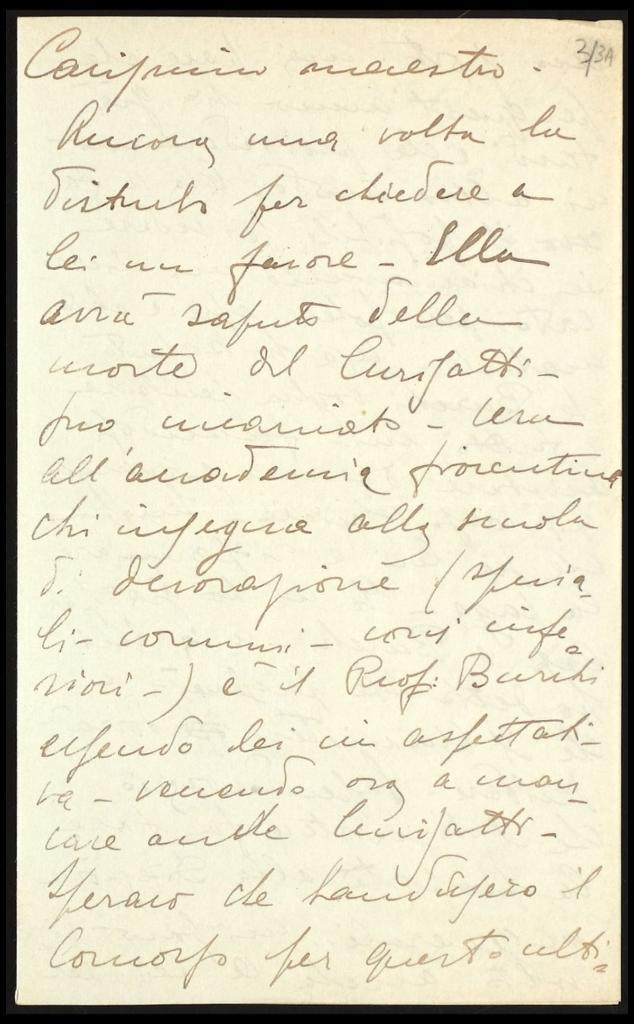 3/3A
Carissimo maestro.
Ancora una volta la
disturbo per chiedere a
lei un favore - Ella
avrà saputo della
morte del
suo incaricato -
all'accademia fiorentina
chi insegna alla scuola
di decorazione (specia-
li - comuni - corsi infe=
riori -) è il Prof: Burchi
essendo lei in aspettati-
va - venendo ora a man-
care anche
Speravo che bandissero il
Concorso per questo ulti=